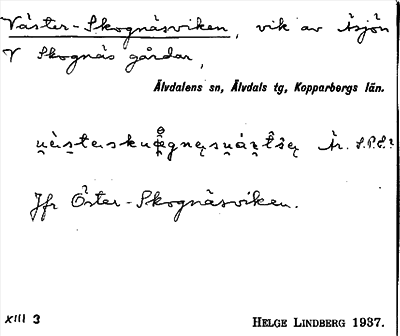 Väster-Skognäsviken, vik av Åsjön
V Skognäs gårdar,
Älvdalens sn, Älvdals tg, Kopparbergs län.
Är. S.P.E.?
Jfr Öster-Skognäsviken.
XIII 3
HELGE LINDBERG 1937.